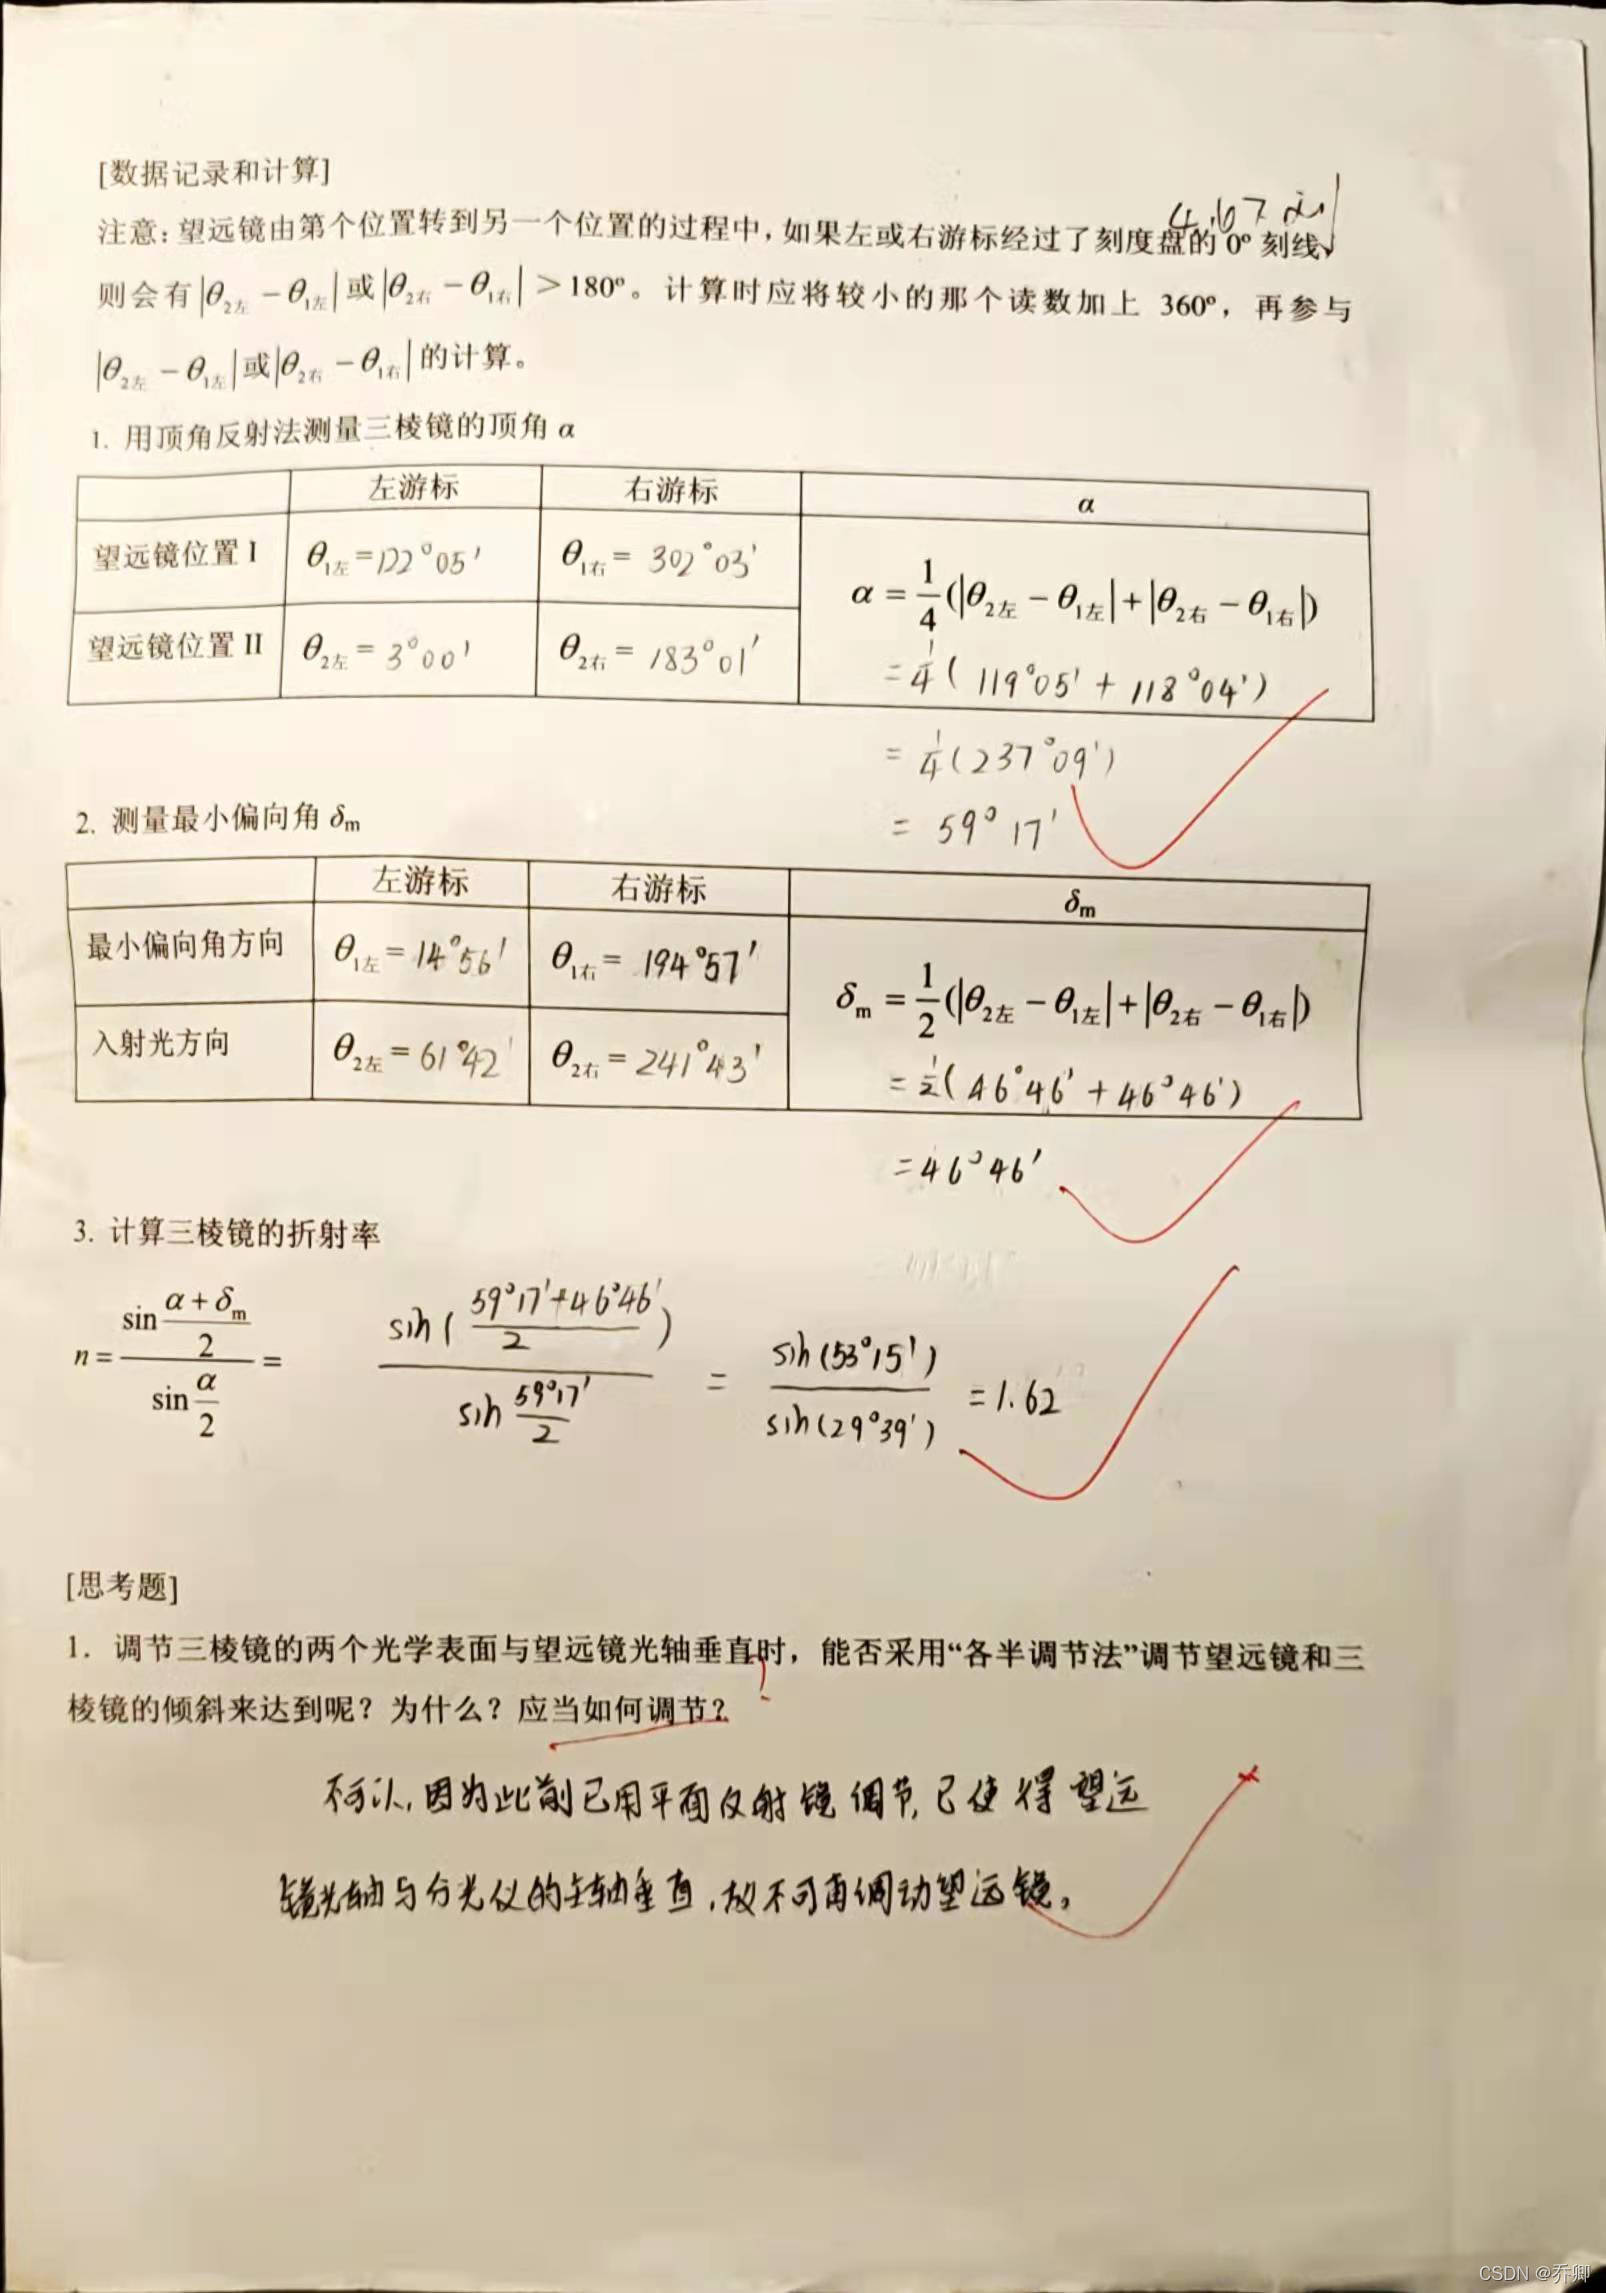 [数据记录和计算]
4.67
注意：望远镜由第个位置转到另一个位置的过程中，如果左或右游标经过了刻度盘的 0º 刻线，
则会有|θ2左 − θ1左|或|θ2右 − θ1右| > 180º。计算时应将较小的那个读数加上 360º，再参与
|θ2左 − θ1左|或|θ2右 − θ1右|的计算。
1. 用顶角反射法测量三棱镜的顶角 α
左游标 右游标 α
望远镜位置 I θ1左=122°05′ θ1右= 302°03′ α = 1/4(|θ2左 − θ1左|+|θ2右 − θ1右|)
望远镜位置 II θ2左= 3°00′ θ2右= 183°01′ = 1/4( 119°05′ + 118°04′)
= 1/4(237°09′)
= 59°17′
2. 测量最小偏向角 δm
左游标 右游标 δm
最小偏向角方向 θ1左=14°56′ θ1右= 194°57′ δm = 1/2(|θ2左 − θ1左|+|θ2右 − θ1右|)
入射光方向 θ2左=61°42′ θ2右=241°43′ = 1/2(46°46′ + 46°46′)
=46°46′
3. 计算三棱镜的折射率
n = sin((α + δm)/2) / sin(α/2) = sin((59°17′+46°46′)/2) / sin(59°17′/2) = sin(53°15′) / sin(29°39′) =1.62
[思考题]
1. 调节三棱镜的两个光学表面与望远镜光轴垂直时，能否采用“各半调节法”调节望远镜和三
棱镜的倾斜来达到呢？为什么？应当如何调节？
?
不可以，因为此前已用平面反射镜调节，已使得望远
镜光轴与分光仪的主轴垂直，故不可再调动望远镜。
CSDN @乔卿